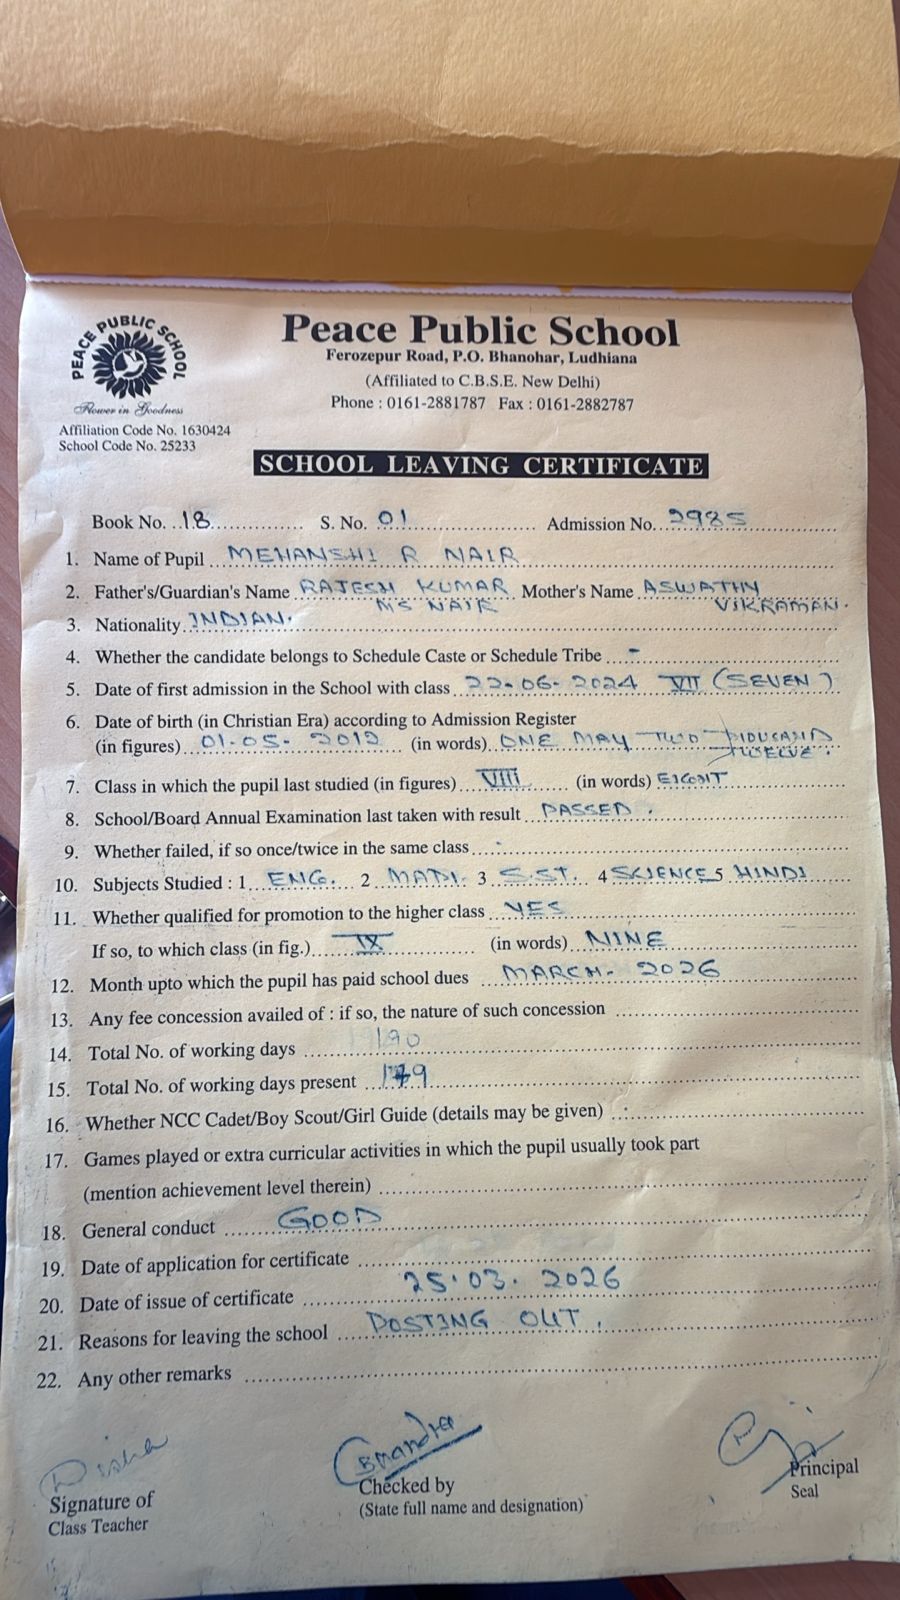 PEACE PUBLIC SCHOOL
Flower in Goodness
Affiliation Code No. 1630424
School Code No. 25233
Peace Public School
Ferozepur Road, P.O. Bhanohar, Ludhiana
(Affiliated to C.B.S.E. New Delhi)
Phone : 0161-2881787 Fax : 0161-2882787
SCHOOL LEAVING CERTIFICATE
Book No. 18 S. No. 01 Admission No. 2985
1. Name of Pupil MEHANSHI R NAIR
2. Father's/Guardian's Name RAJESH KUMAR MS NAIR Mother's Name ASWATHY VIKRAMAN.
3. Nationality INDIAN.
4. Whether the candidate belongs to Schedule Caste or Schedule Tribe -
5. Date of first admission in the School with class 22-06-2024 VII (SEVEN)
6. Date of birth (in Christian Era) according to Admission Register
(in figures) 01-05-2012 (in words) ONE MAY TWO THOUSAND TWELVE.
7. Class in which the pupil last studied (in figures) VIII (in words) EIGHT
8. School/Board Annual Examination last taken with result PASSED.
9. Whether failed, if so once/twice in the same class -
10. Subjects Studied : 1 ENG. 2 MATH. 3 S.ST. 4 SCIENCE 5 HINDI
11. Whether qualified for promotion to the higher class YES
If so, to which class (in fig.) IX (in words) NINE
12. Month upto which the pupil has paid school dues MARCH-2026
13. Any fee concession availed of : if so, the nature of such concession
14. Total No. of working days 190
15. Total No. of working days present
16. Whether NCC Cadet/Boy Scout/Girl Guide (details may be given)
17. Games played or extra curricular activities in which the pupil usually took part
(mention achievement level therein)
18. General conduct GOOD
19. Date of application for certificate
20. Date of issue of certificate 25.03.2026
21. Reasons for leaving the school POSTING OUT.
22. Any other remarks
Disha
Signature of
Class Teacher
Checked by
(State full name and designation)
Principal
Seal